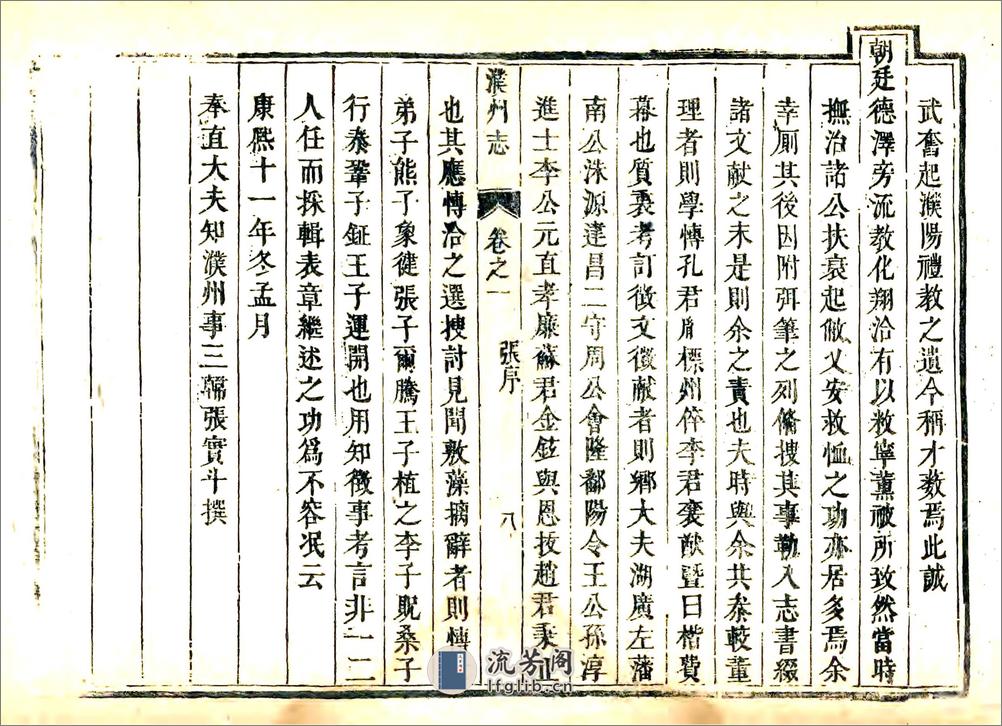 武奮起濮陽禮教之遺今稱才數焉此誠
朝廷德澤旁流教化翔洽有以教寧薰被所致然當時
撫治諸公扶衰起敝乂安救恤之功亦居多焉余
幸厠其後因附弭筆之列脩搜其事勒入志書綴
諸文献之末是則余之責也夫時與余其叅較董
理者則學博孔君胤標州倅李君褒猷暨曰楷費
幕也質衷考訂徵文徵献者則郷大夫湖廣左藩
南公洙源建昌二守周公會隆鄱陽令王公孫淳
進士李公元直孝廉蘇君金鉉與恩拔趙君秉
濮州志 卷之一 張序 八
也其應博洽之選搜討見聞敷藻摛辭者則博
弟子熊子象健張子爾騰王子植之李子貺桑子
行泰鞏子鉦王子運開也用知徵事考言非一二
人任而採輯表章繼述之功爲不容冺云
康熙十一年冬孟月
奉直大夫知濮州事三韓張實斗撰
流芳阁
lfglib.cn